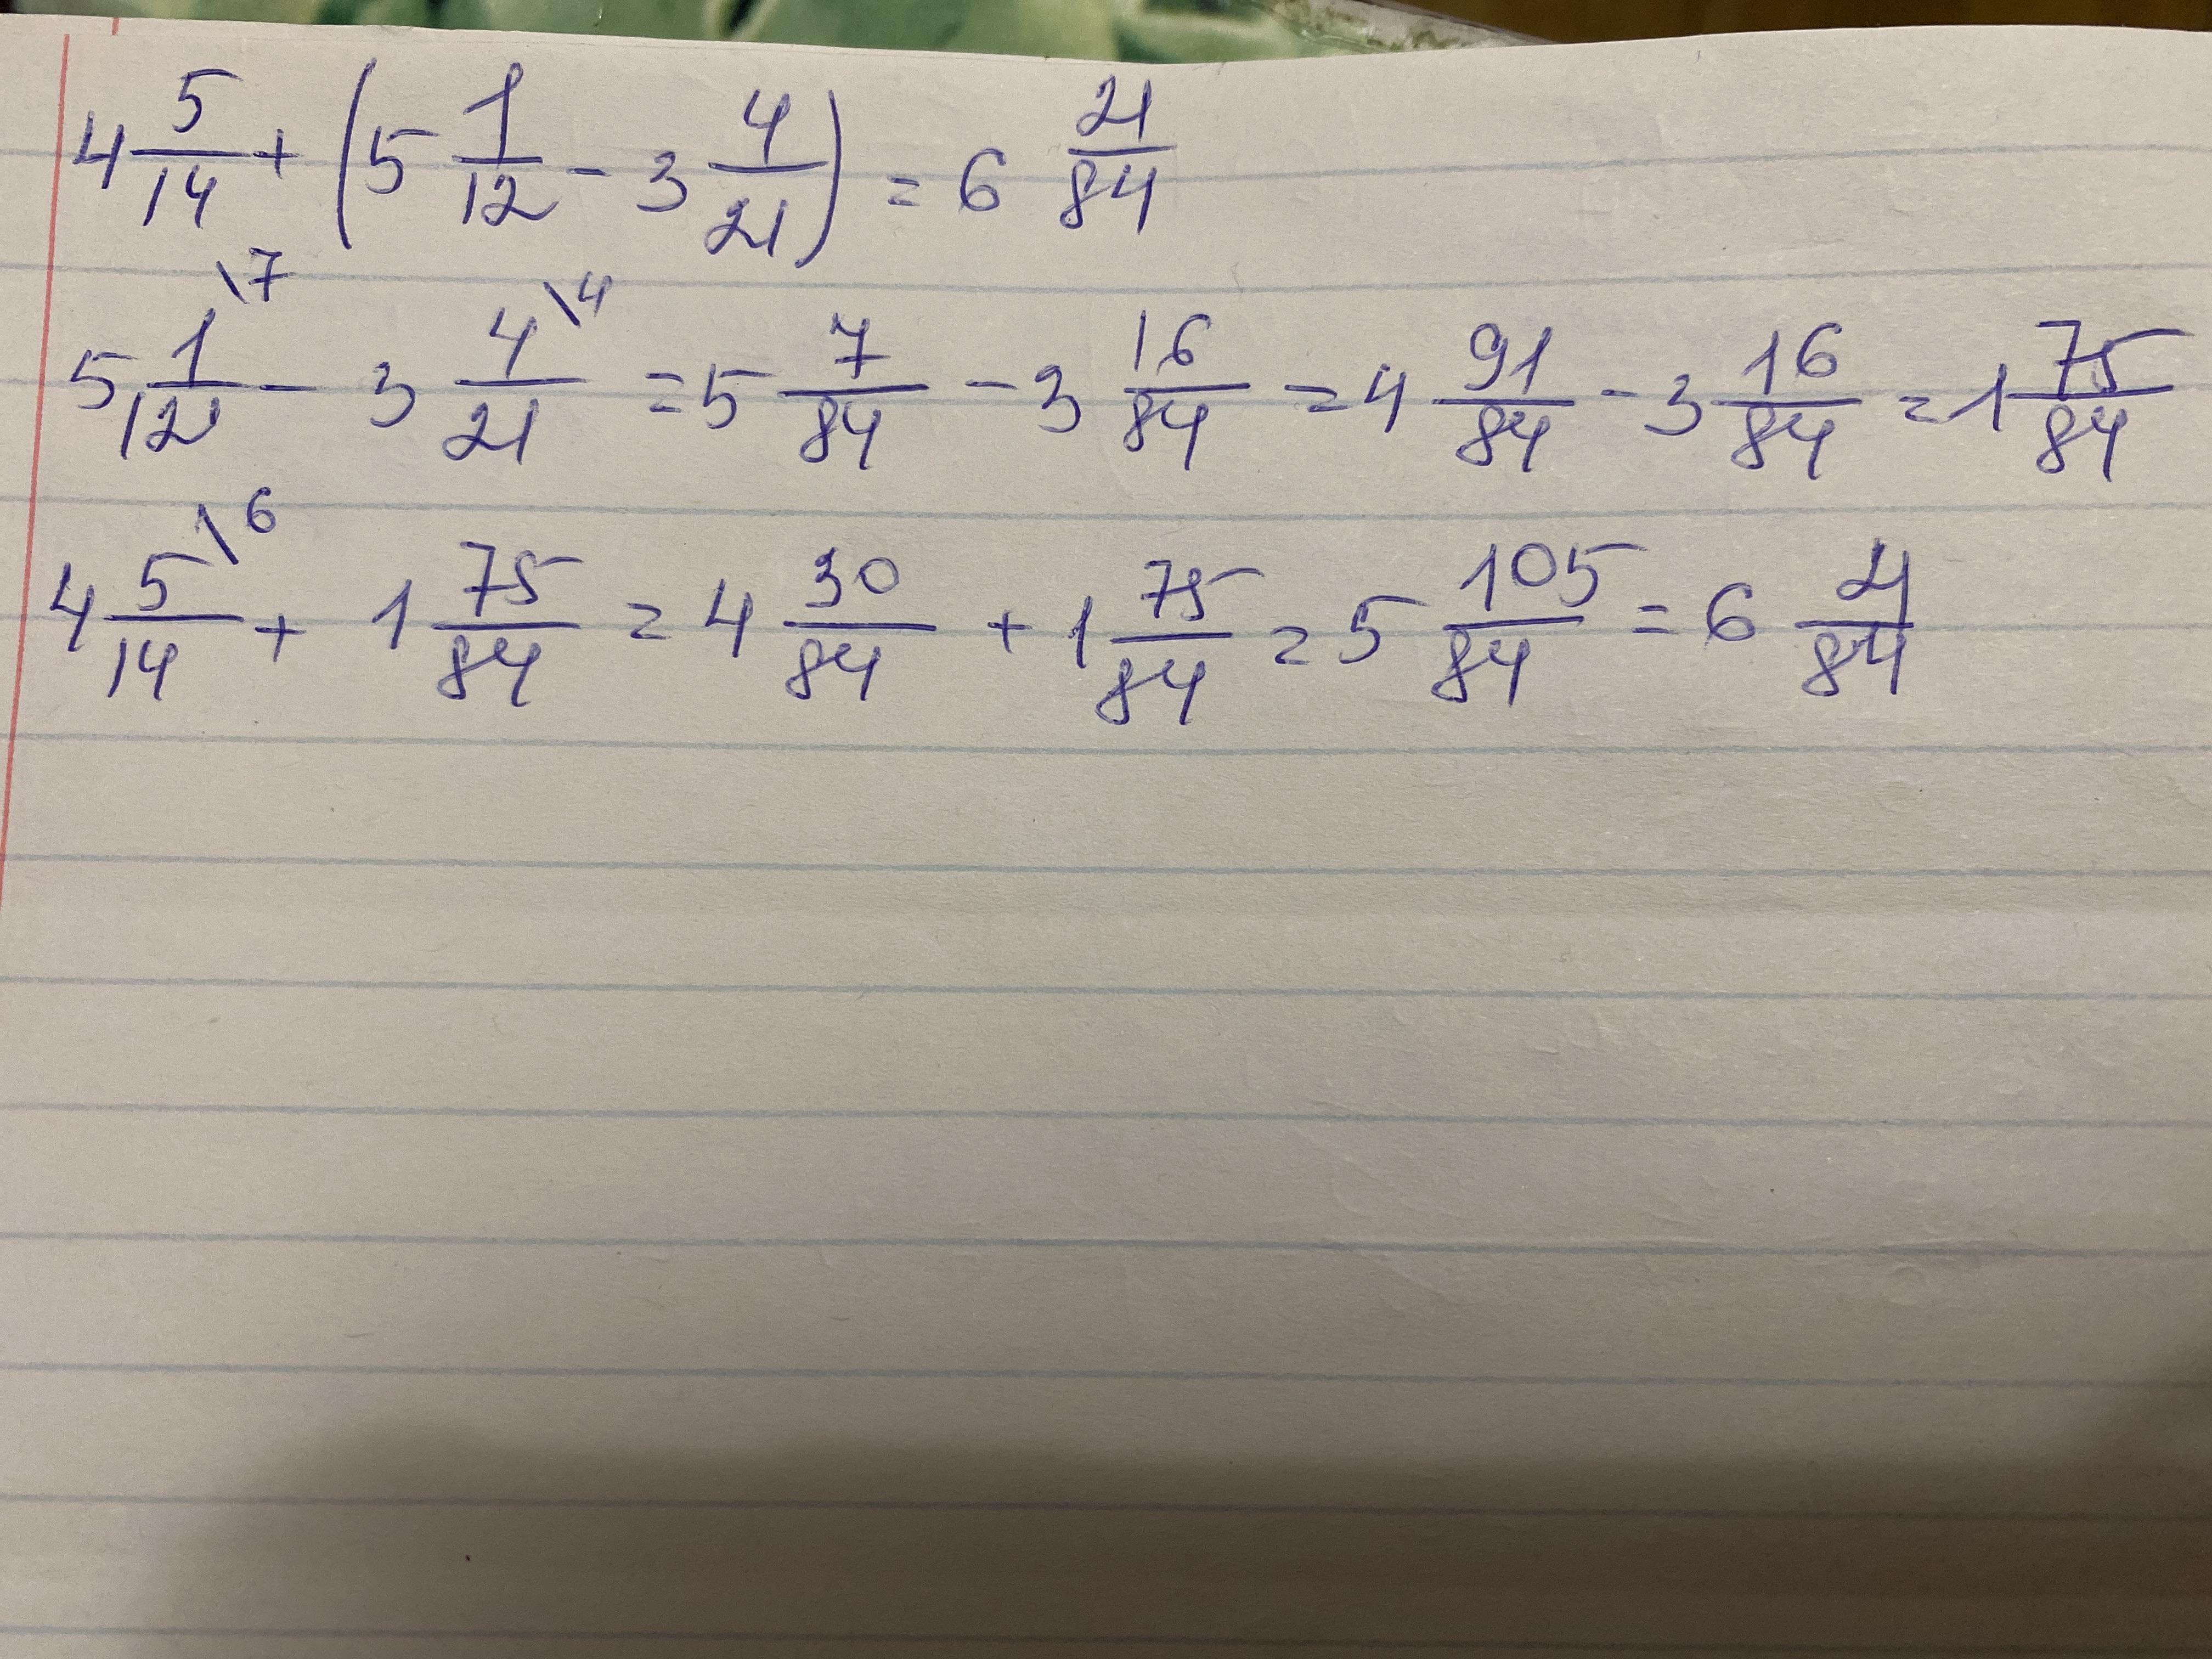 4 5/14 + (5 1/12 - 3 4/21) = 6 21/84
5 1/12 \7 - 3 4/21 \4 = 5 7/84 - 3 16/84 = 4 91/84 - 3 16/84 = 1 75/84
4 5/14 \6 + 1 75/84 = 4 30/84 + 1 75/84 = 5 105/84 = 6 21/84